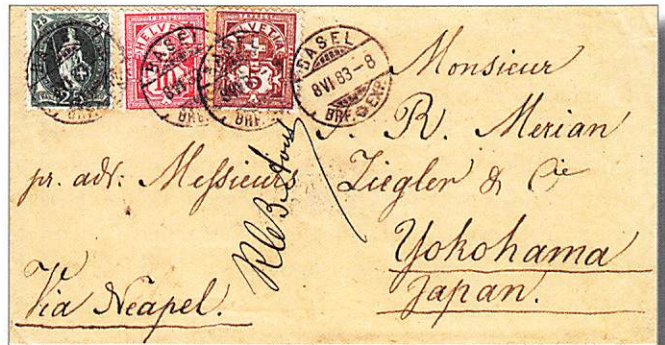 25
10
HELVETIA
5
BASEL
8 VI 83-8
BRF. & EXP.
Monsieur
R. Merian
pr. adr: Messieurs
Ziegler & Cie
Yokohama
Japan.
Via Neapel.